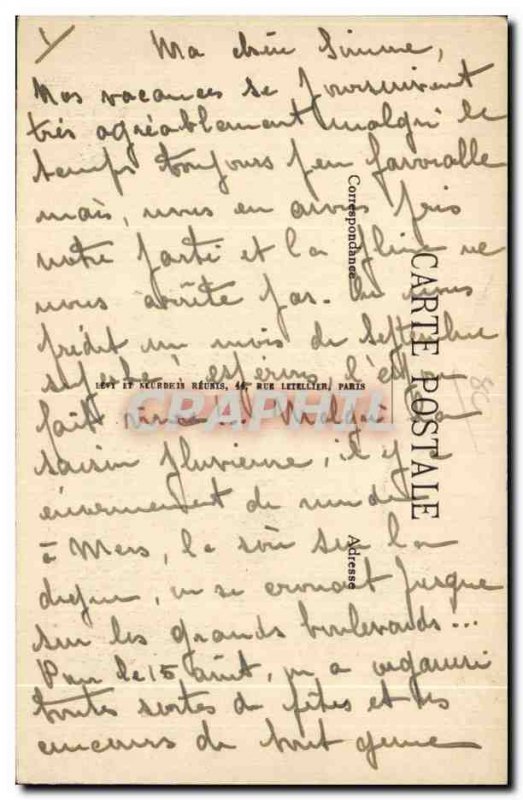 Ma chère Simone,
Nos vacances se poursuivent
très agréablement malgré le
temps toujours peu favorable
mais, nous en avons pris
notre parti et la pluie ne
nous arrête pas. On nous
prédit un mois de Septembre
superbe; espérons, l'espoir
fait vivre!.. Malgré la
saison pluvieuse, il y a
énormément de monde
à Mers, le soir sur la
digue, on se croirait presque
sur les grands boulevards...
Pour le 15 août, on a organisé
toutes sortes de fêtes et des
concours de tout genre
CARTE POSTALE
Correspondance
Adresse
LÉVY ET NEURDEIN RÉUNIS, 44, RUE LETELLIER, PARIS
CRAPHIL